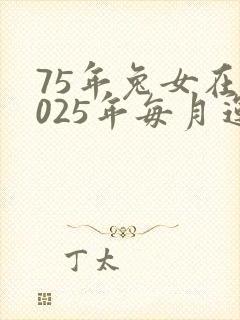 75年兔女在
025年每月
丁太